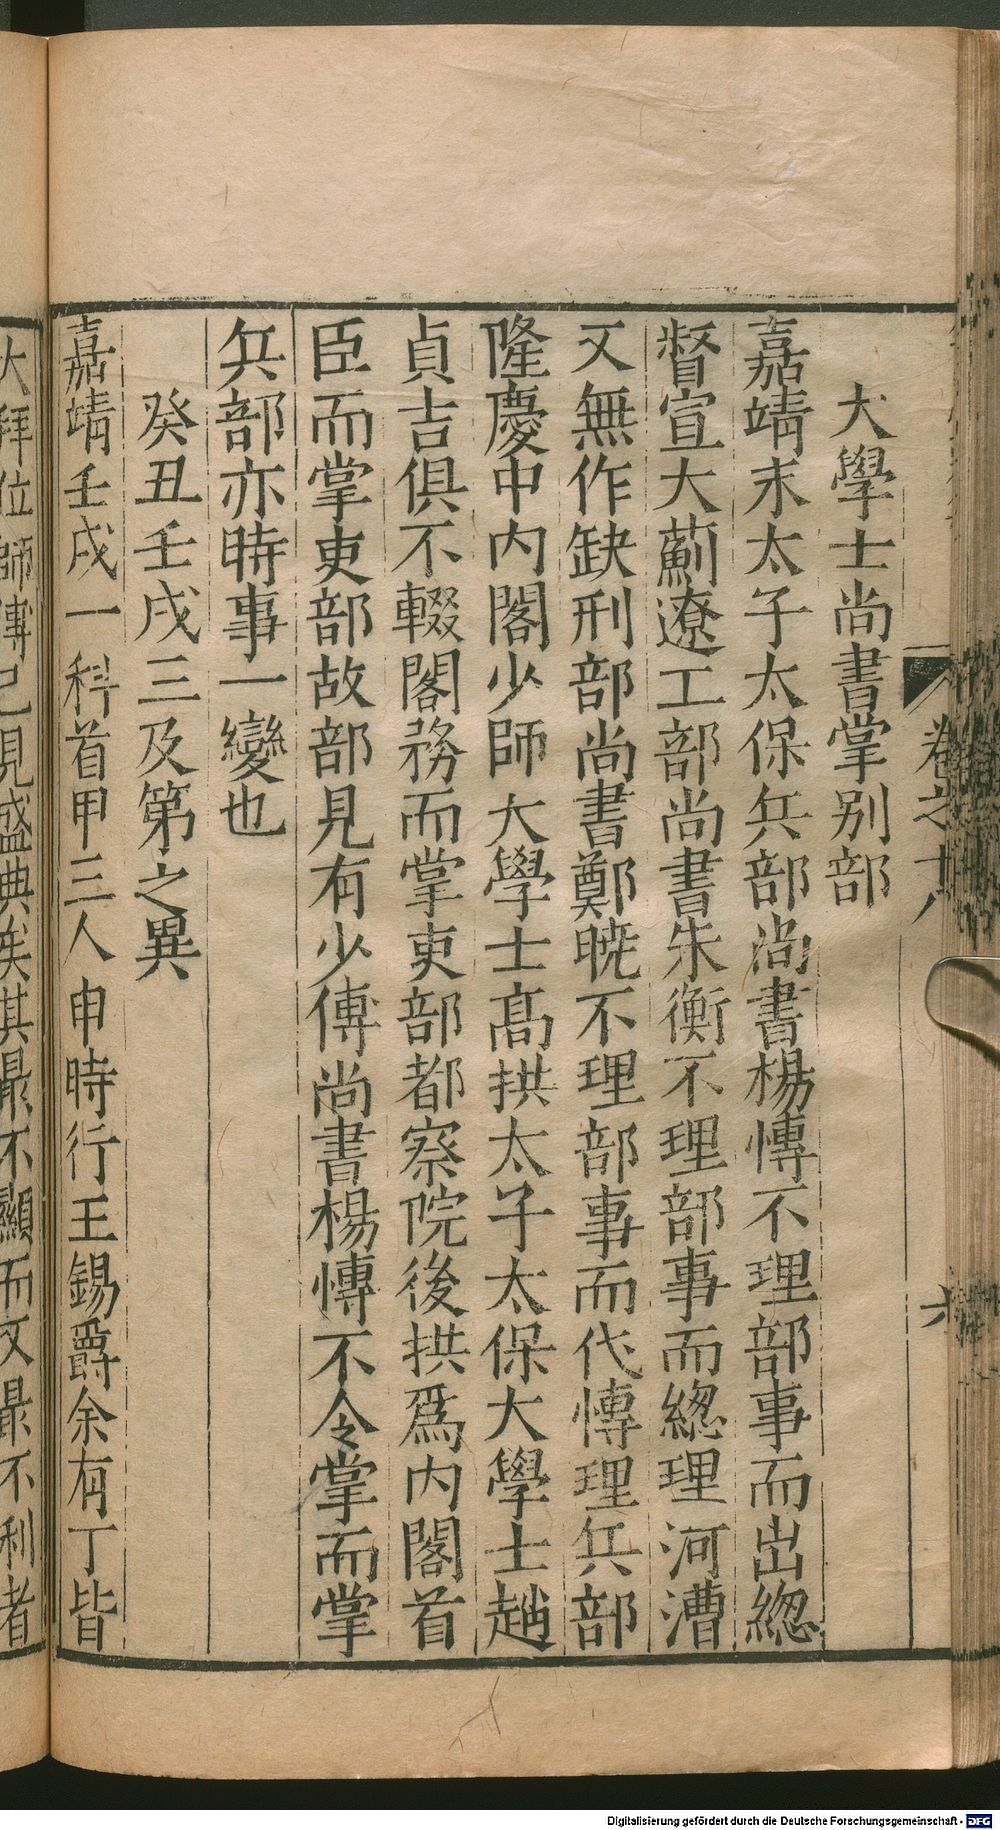 卷之十八
六
大學士尚書掌别部
嘉靖末太子太保兵部尚書楊愽不理部事而出緫
督宣大薊遼工部尚書朱衡不理部事而緫理河漕
又無作缺刑部尚書鄭曉不理部事而代愽理兵部
隆慶中内閣少師大學士髙拱太子太保大學士趙
貞吉俱不輟閣務而掌吏部都察院後拱爲内閣首
臣而掌吏部故部見有少傅尚書楊愽不令掌而掌
兵部亦時事一變也
癸丑壬戌三及第之異
嘉靖壬戌一科首甲三人申時行王錫爵余有丁皆
大拜位師傅已見盛典矣其最不顯而又最不利者
Digitalisierung gefördert durch die Deutsche Forschungsgemeinschaft - DFG